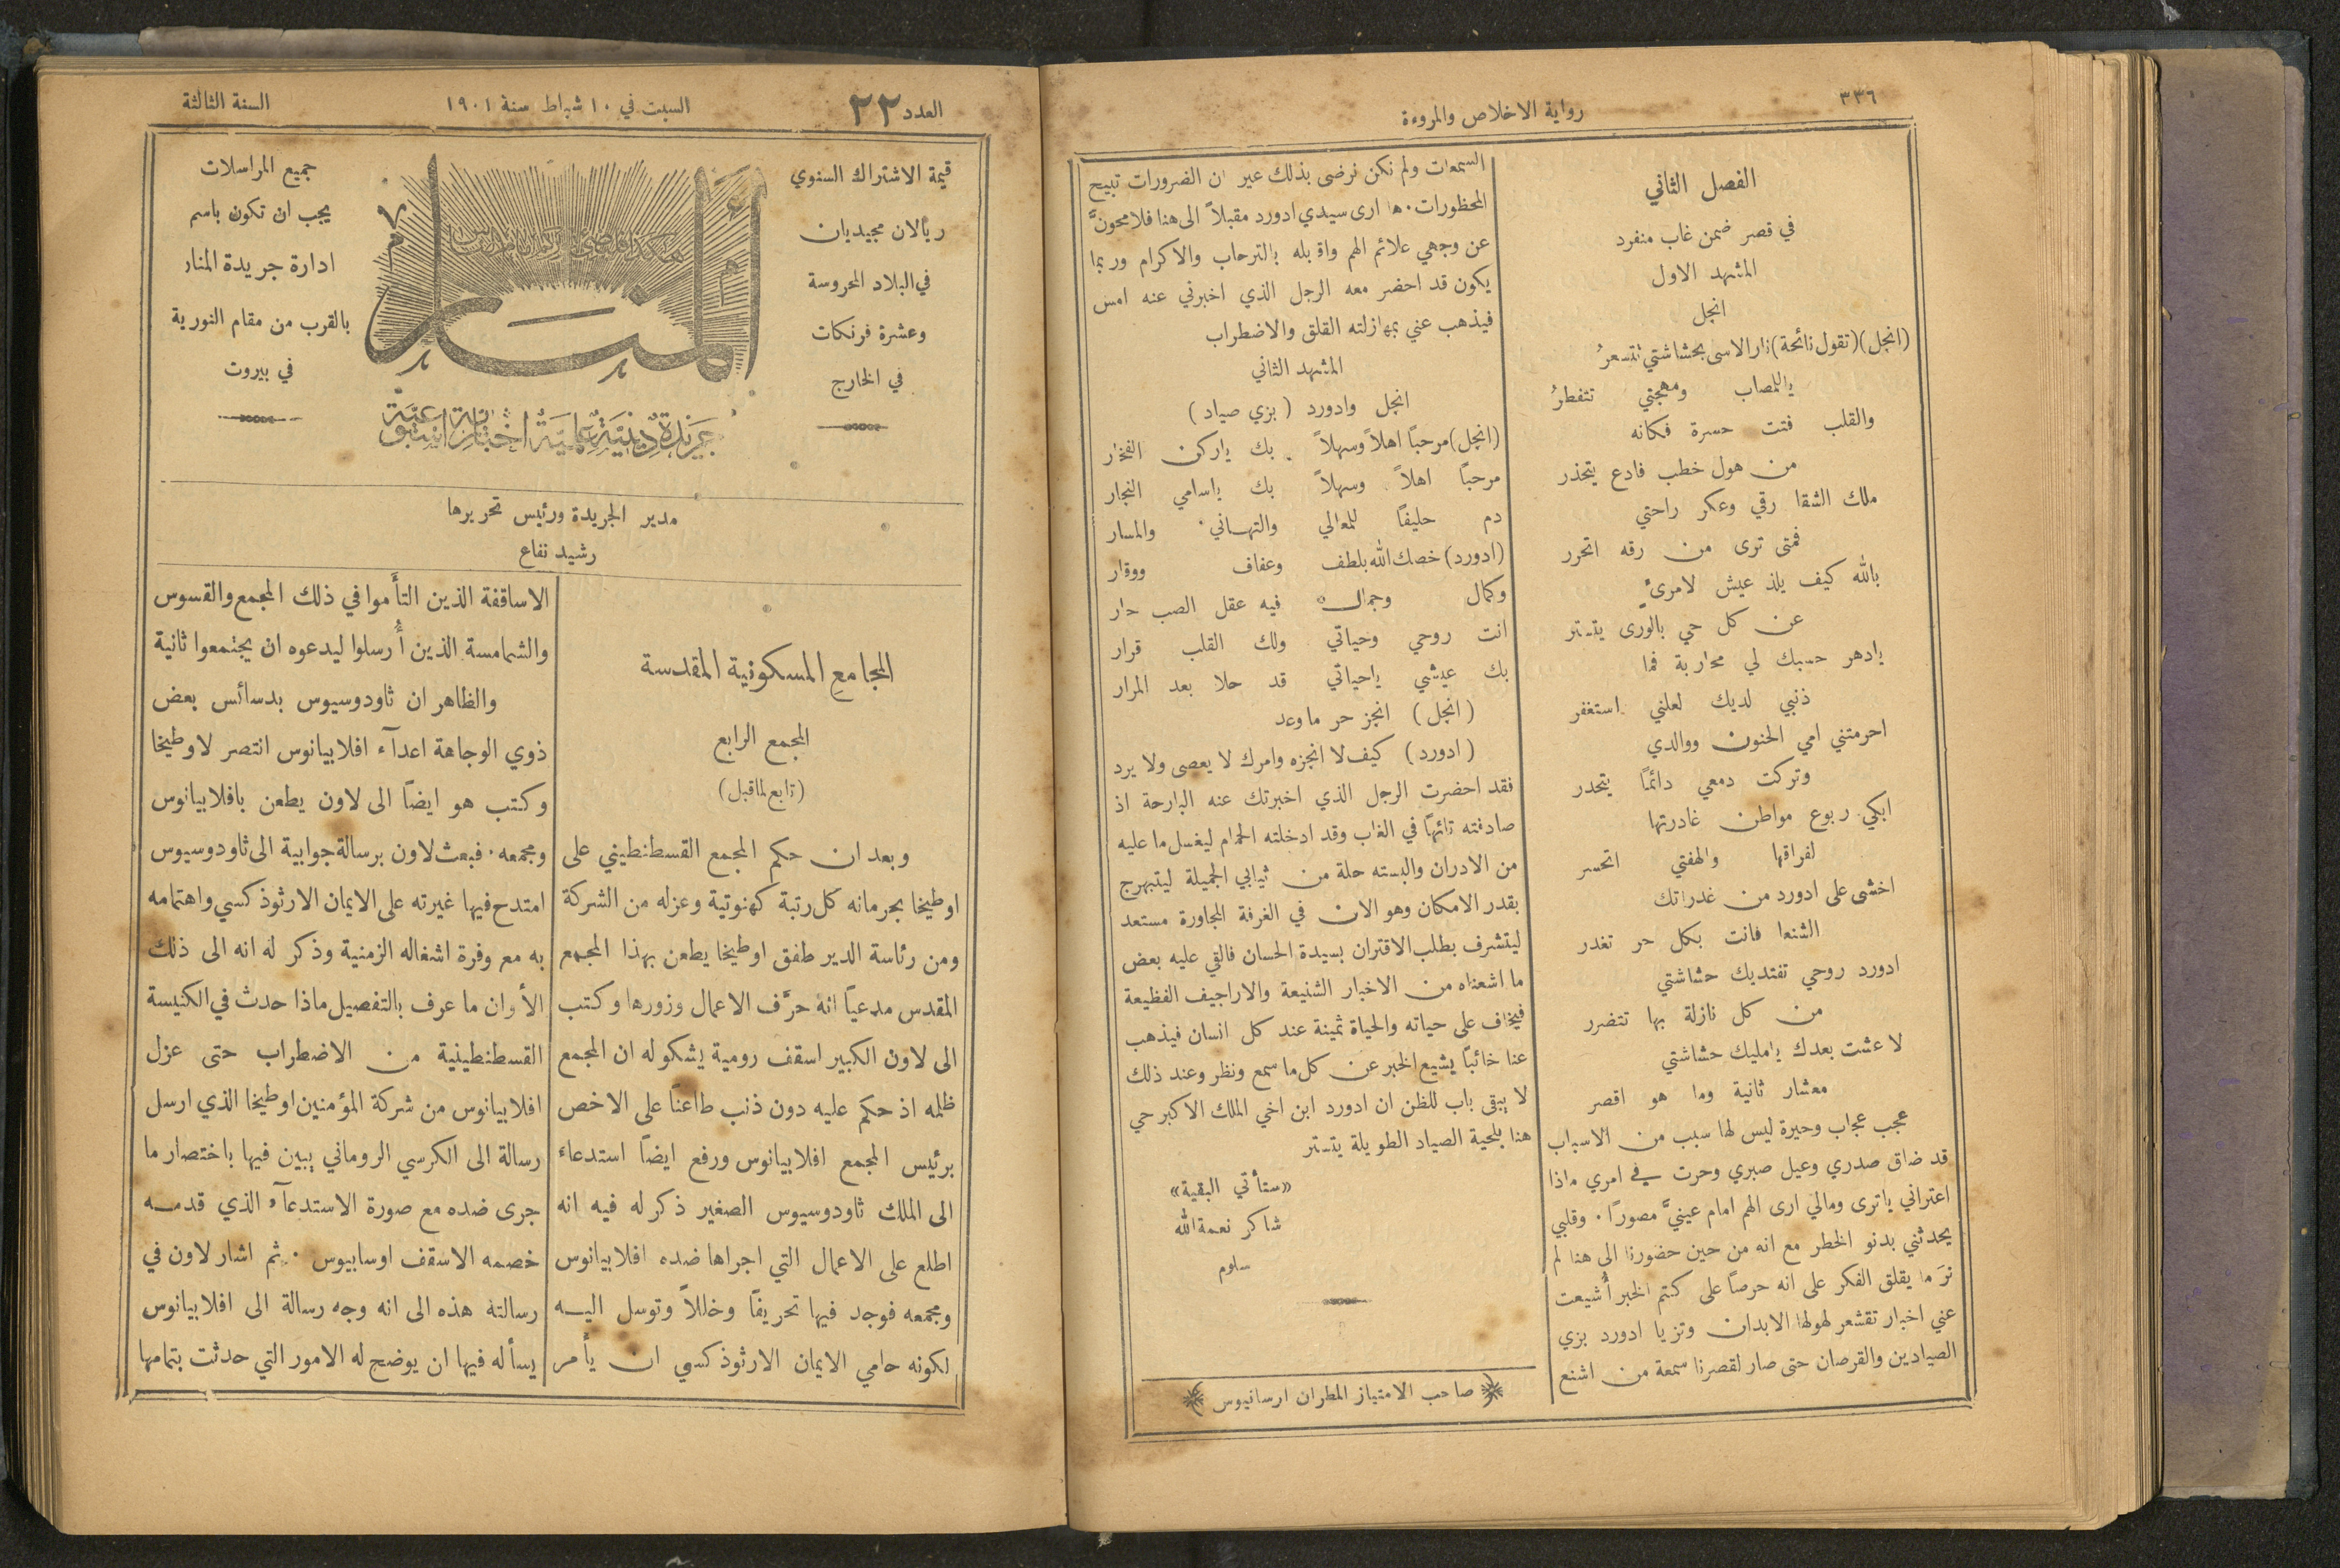 ٣٣٦
رواية الاخلاص والمروءة
الفصل الثاني
في قصر ضمن غاب منفرد
المشهد الاول
انجل
(انجل)(تقول نائحة) نار الاسى بحشاشتي تتسعرُ
ياللمصاب ومهجتي تتفطرُ
والقلب فتت حسرة فكانه
من هول خطب فادع يتحذر
ملك الشقا رقي وعكر راحتي
فمتى ترى من رقه اتحرر
بالله كيف يلذ عيش لامرئٍ
عن كل حي بالورى يتستر
يادهر حسبك لي محاربة فما
ذنبي لديك لعلني استغفر
احرمتني امي الحنون ووالدي
وتركت دمعي دائمًا يتحدر
ابكي ربوع مواطن غادرتها
لفراقها والهفتي اتحسر
اخشى على ادورد من غدراتك
الشنعا فانت بكل حر تغدر
ادورد روحي تفتديك حشاشتي
من كل نازلة بها تتضرر
لا عشت بعدك يامليك حشاشتي
معشار ثانية وما هو اقصر
عجب عجاب وحيرة ليس لها سبب من الاسباب
قد ضاق صدري وعيل صبري وحرت في امري ماذا
اعتراني ياترى ومالي ارى الهم امام عينيَّ مصورًا. وقلبي
يحدثني بدنو الخطر مع انه من حين حضورنا الى هنا لم
نرَ ما يقلق الفكر على انه حرصًا على كتم الخبر أُشيعت
عني اخبار تقشعر لهولها الابدان وتزيا ادورد بزي
الصيادين والقرصان حتى صار لقصرنا سمعة من اشنع
السمعات ولم نكن نرضى بذلك غير ان الضرورات تبيح
المحظورات. ها ارى سيدي ادورد مقبلاً الى هنا فلامحونَّ
عن وجهي علائم الهم واقبله بالترحاب والاكرام وربما
يكون قد احضر معه الرجل الذي اخبرني عنه امس
فيذهب عني بمهازلته القلق والاضطراب
المشهد الثاني
انجل وادورد (بزي صياد)
(انجل) مرحبًا اهلاً وسهلاً بك ياركن الفخار
مرحبًا اهلاً وسهلاً بك ياسامي النجار
دم حليفًا للمعالي والتهاني والمسار
(ادورد) خصك الله بلطف وعفاف ووقار
وكمال وجمال فيه عقل الصب حار
انت روحي وحياتي ولك القلب قرار
بك عيشي ياحياتي قد حلا بعد المرار
(انجل) انجز حر ما وعد
(ادورد) كيف لا انجزه وامرك لا يعصى ولا يرد
فقد احضرت الرجل الذي اخبرتك عنه البارحة اذ
صادفته تائهًا في الغاب وقد ادخلته الحمام ليغسل ما عليه
من الادران والبسته حلة من ثيابي الجميلة ليتبهرج
بقدر الامكان وهو الان في الغرفة المجاورة مستعد
ليتشرف بطلب الاقتران بسيدة الحسان فالقي عليه بعض
ما اشعناه من الاخبار الشنيعة والاراجيف الفظيعة
فيخاف على حياته والحياة ثمينة عند كل انسان فيذهب
عنا خائبًا يشيع الخبر عن كل ما سمع ونظر وعند ذلك
لا يبقى باب للظن ان ادورد ابن اخي الملك الاكبر حي
هنا بلحية الصياد الطويلة يتستر
«ستأتي البقية»
شاكر نعمة الله
سلوم
صاحب الامتياز المطران ارسانيوس
العدد ٢٢
السبت في ١٠ شباط سنة ١٩٠١
السنة الثالثة
قيمة الاشتراك السنوي
ريالان مجيديان
في البلاد المحروسة
وعشرة فرنكات
في الخارج
المنار
جريدة دينية علمية اخبارية اسبوعية
جميع المراسلات
يجب ان تكون باسم
ادارة جريدة المنار
بالقرب من مقام النورية
في بيروت
مدير الجريدة ورئيس تحريرها
رشيد نفاع
المجامع المسكونية المقدسة
المجمع الرابع
(تابع لماقبل)
وبعد ان حكم المجمع القسطنطيني على
اوطيخا بحرمانه كل رتبة كهنوتية وعزله من الشركة
ومن رئاسة الدير طفق اوطيخا يطعن بهذا المجمع
المقدس مدعيًا انه حرَّف الاعمال وزورها وكتب
الى لاون الكبير اسقف رومية يشكو له ان المجمع
ظلمه اذ حكم عليه دون ذنب طاعنًا على الاخص
برئيس المجمع افلابيانوس ورفع ايضًا استدعاء
الى الملك ثاودوسيوس الصغير ذكر له فيه انه
اطلع على الاعمال التي اجراها ضده افلابيانوس
ومجمعه فوجد فيها تحريفًا وخللاً وتوسل اليه
لكونه حامي الايمان الارثوذكسي ان يأمر
الاساقفة الذين التأَموا في ذلك المجمع والقسوس
والشمامسة الذين أُرسلوا ليدعوه ان يجتمعوا ثانية
والظاهر ان ثاودوسيوس بدسائس بعض
ذوي الوجاهة اعدآء افلابيانوس انتصر لاوطيخا
وكتب هو ايضًا الى لاون يطعن بافلابيانوس
ومجمعه. فبعث لاون برسالة جوابية الى ثاودوسيوس
امتدح فيها غيرته على الايمان الارثوذكسي واهتمامه
به مع وفرة اشغاله الزمنية وذكر له انه الى ذلك
الأوان ما عرف بالتفصيل ماذا حدث في الكنيسة
القسطنطينية من الاضطراب حتى عزل
افلابيانوس من شركة المؤمنين اوطيخا الذي ارسل
رسالة الى الكرسي الروماني يبين فيها باختصار ما
جرى ضده مع صورة الاستدعآء الذي قدمه
خصمه الاسقف اوسابيوس. ثم اشار لاون في
رسالته هذه الى انه وجه رسالة الى افلابيانوس
يسأله فيها ان يوضح له الامور التي حدثت بتمامها